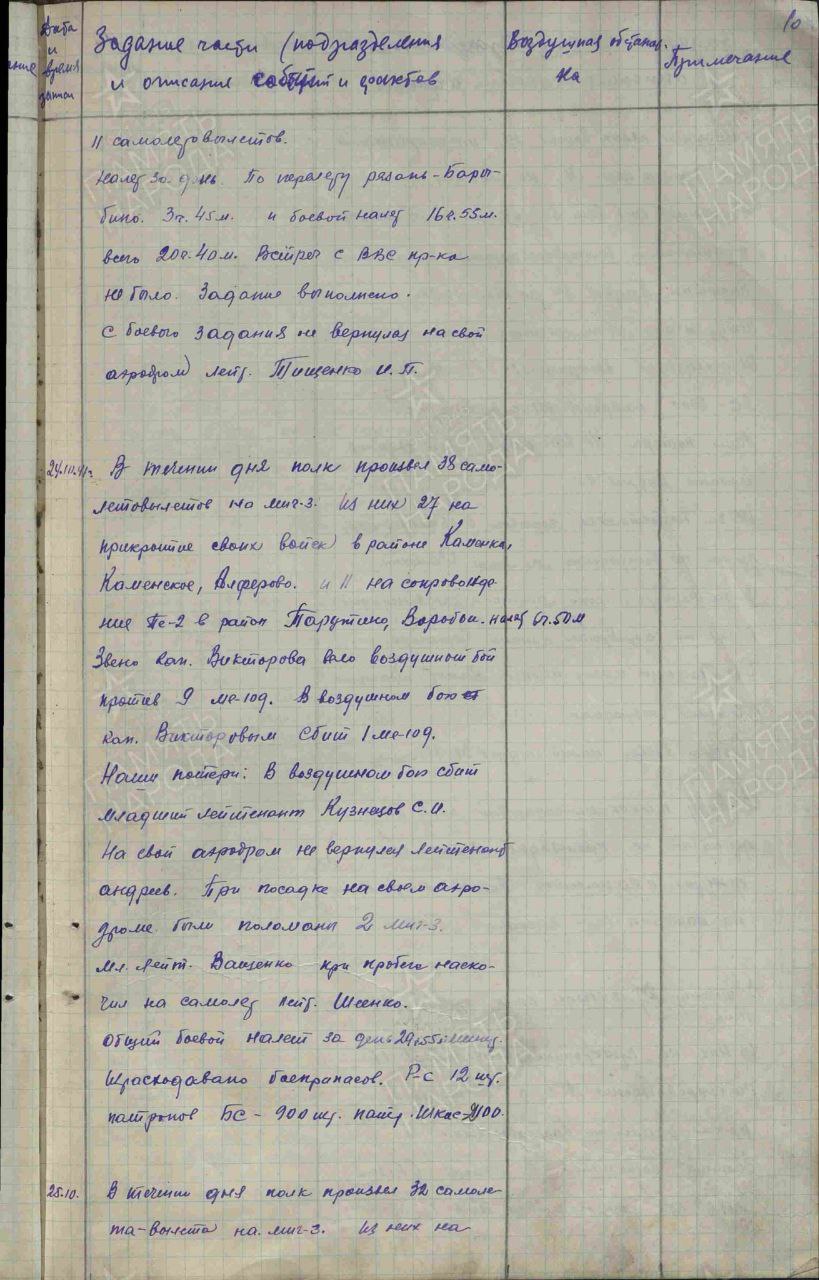 10
Дата
и
время
записи
Задание части (подразделения
и описание событий и фактов
Воздушная обстанов.
на
Примечание
11 самолетовылетов.
налет за день. По перелету рязань-Бары-
бино. 3ч. 45м. и боевой налет 16ч. 55м.
всего 20ч. 40м. Встреч с ВВС пр-ка
не было. Задание выполнено.
С боевого задания не вернулся на свой
аэродром лейт. Тищенко И. П.
24.10.41г. В течении дня полк произвел 38 само-
летовылетов на миг-3. Из них 27 на
прикрытие своих войск в районе Каменка,
Каменское, Алферово. и 11 на сопровожде-
ние Пе-2 в район Тарутино, Воробьи. налет 6ч. 50м
Звено кап. Викторова вело воздушный бой
против 9 ме-109. В воздушном бою
кап. Викторовым сбит 1 ме-109.
Наши потери: В воздушном бою сбит
младший лейтенант Кузнецов С.И.
На свой аэродром не вернулся лейтенант
андреев. При посадке на своем аэро-
дроме были поломаны 2 миг-3.
Мл. лейт. Ващенко при пробеге наско-
чил на самолет лейт. Шеенко.
общий боевой налет за день 29ч. 55 минут.
Израсходовано боеприпасов. Р-с 12 шт.
патронов БС - 900 шт. патр. Шкас-
25.10. В течении дня полк произвел 32 самоле-
та-вылета на миг-3. Из них на
ПАМЯТЬ
НАРОДА